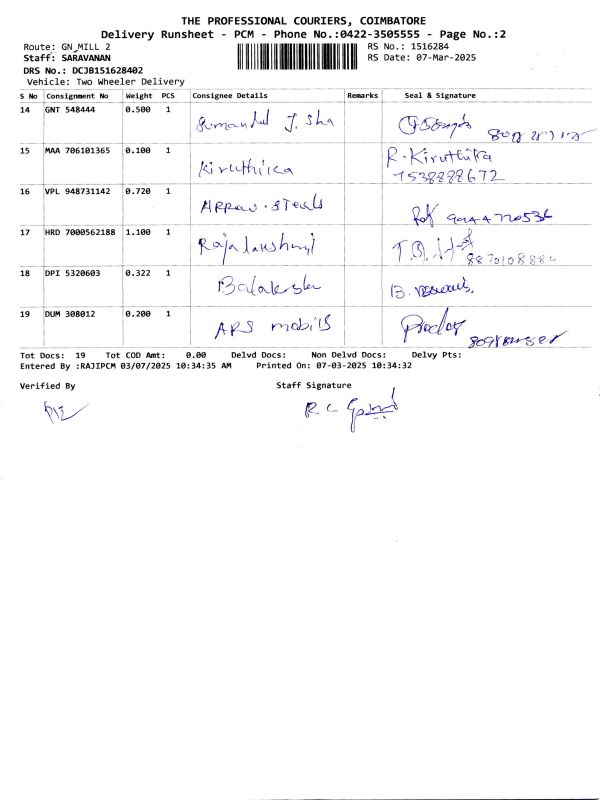 THE PROFESSIONAL COURIERS, COIMBATORE
Delivery Runsheet - PCM - Phone No.:0422-3505555 - Page No.:2
Route: GN_MILL 2 RS No.: 1516284
Staff: SARAVANAN RS Date: 07-Mar-2025
DRS No.: DCJB151628402
Vehicle: Two Wheeler Delivery
S No Consignment No Weight PCS Consignee Details Remarks Seal & Signature
14 GNT 548444 0.500 1 J. Sha
15 MAA 706101365 0.100 1 Kiruthika R. Kiruthika
7538888672
16 VPL 948731142 0.720 1 Arrow. Steels 9944770536
17 HRD 7000562188 1.100 1 Rajalakshmi
18 DPI 5320603 0.322 1 B.
19 DUM 308012 0.200 1 ARS mobils
Tot Docs: 19 Tot COD Amt: 0.00 Delvd Docs: Non Delvd Docs: Delvy Pts:
Entered By :RAJIPCM 03/07/2025 10:34:35 AM Printed On: 07-03-2025 10:34:32
Verified By Staff Signature